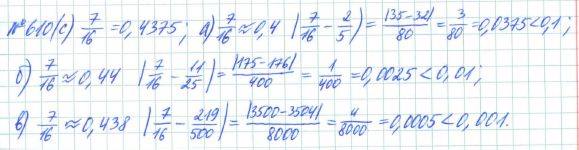 №610(с) 7/16 = 0,4375; а) 7/16 ≈ 0,4 |7/16 - 2/5| = |35-32|/80 = 3/80 = 0,0375 < 0,1;
б) 7/16 ≈ 0,44 |7/16 - 11/25| = |175-176|/400 = 1/400 = 0,0025 < 0,01;
в) 7/16 ≈ 0,438 |7/16 - 219/500| = |3500-3504|/8000 = 4/8000 = 0,0005 < 0,001.